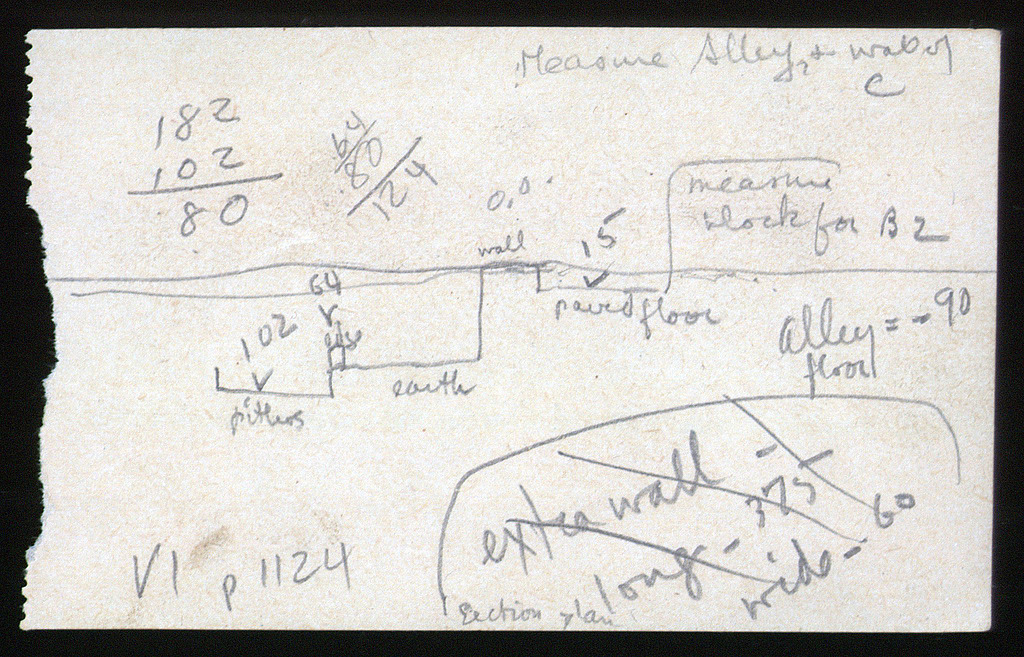 Measure Alley, + wall of
C
182
102
80
64
80
124
0.0
measure
block for B2
wall
15
64
102
paved floor
edge
earth
pithos
alley = - 90
floor
extra wall -
long - 375
wide - 60
Section plan
VI p 1124